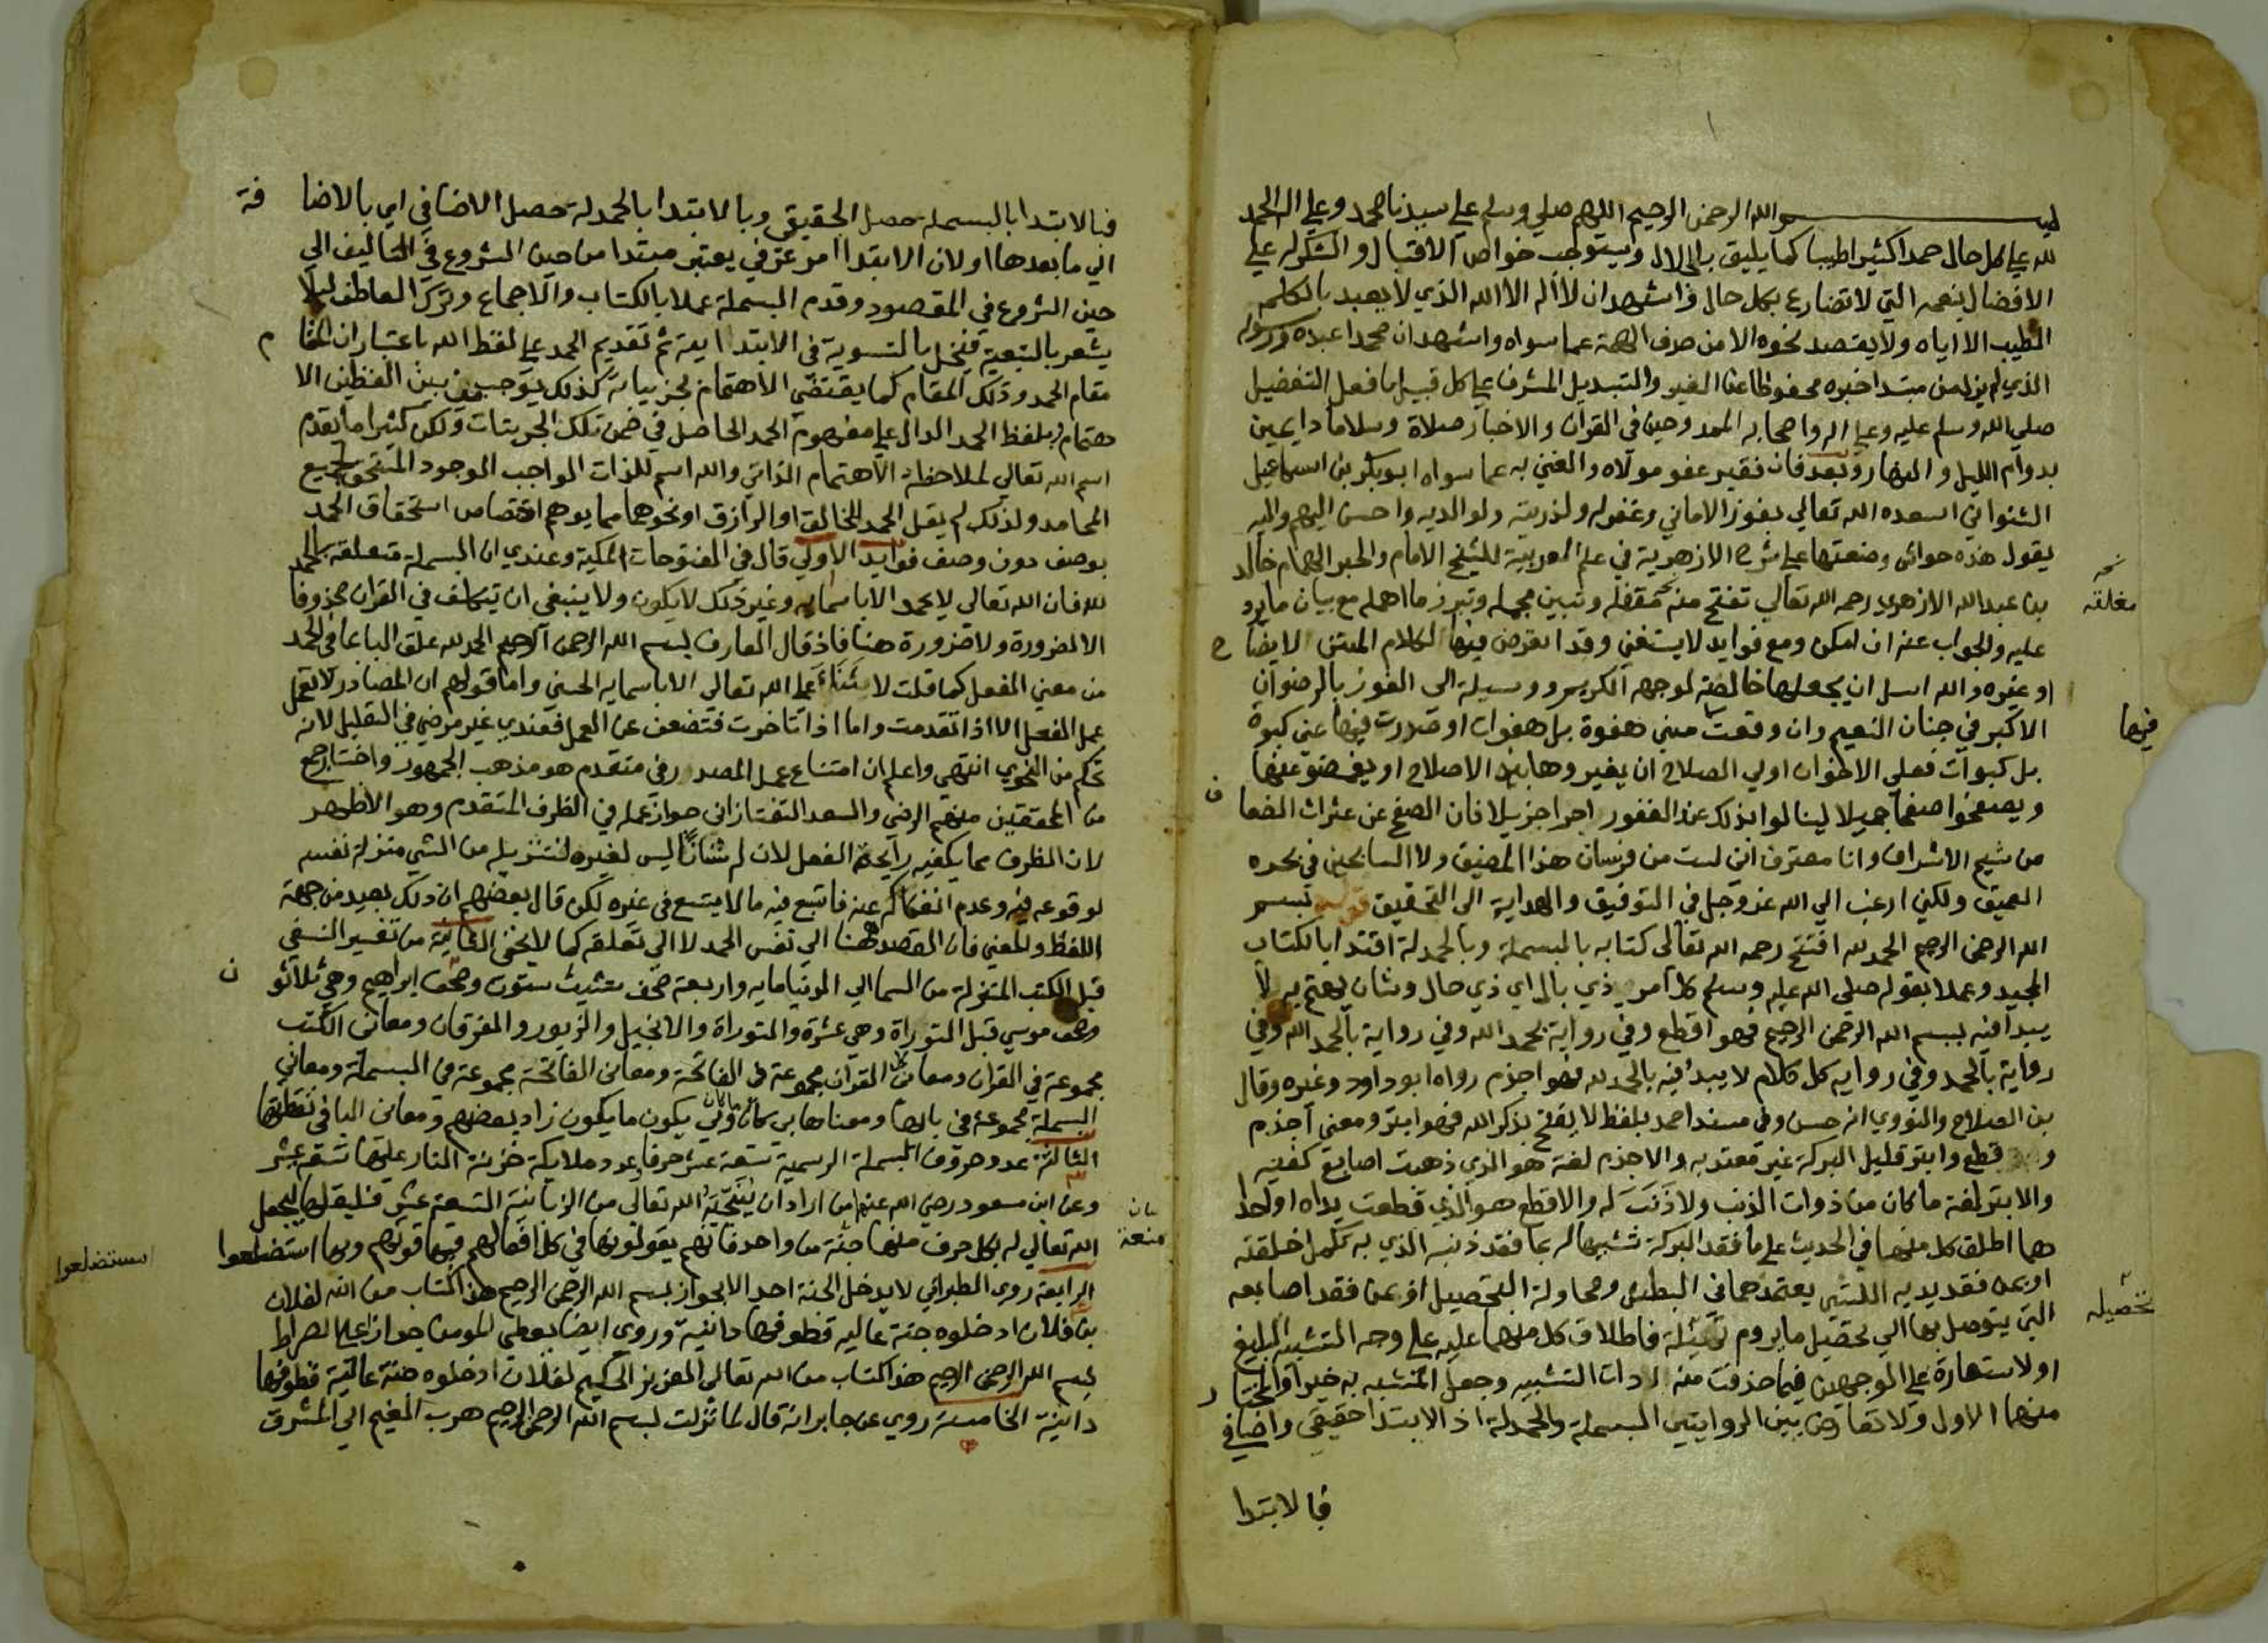 بسم الله الرحمن الرحيم اللهم صلي وسلم علي سيدنا محمد وعلي اله الحمد
لله علي كل حال حمدا كثيرا طيبا كما يليق بالجلال ويستوجب خواص الاقبال والشكر له علي
الافضال بنعمه التي لا تضارع بكل حال واشهد ان لا اله الا الله الذي لا يعبد بالكلم
الطيب الا اياه ولا يقصد نحوه الا من صرف الهمة عما سواه واشهد ان محمدا عبده ورسوله
الذي لم يزل من مبتدا خبره محفوظا عن الغير والتبديل المشرف علي كل قبيل بافعل التفضيل
صلي الله وسلم عليه وعلي اله واصحابه الممدوحين في القران والاخبار صلاة وسلاما دايمين
بدوام الليل والنهار وبعد فان فقير عفو مولاه والغني به عما سواه ابو بكر بن اسماعيل
الشنواني اسعده الله تعالي بفوز الاماني وغفر له ولذريته ولوالديه واحسن اليهم واليه
يقول هذه حواش وضعتها علي شرح الازهرية في علم العربية للشيخ الامام والحبر الهمام خالد
بن عبد الله الازهري رحمه الله تعالي تفتح منه مقفله وتبين مجمله وتبرز ما اهمله مع بيان ما يرد
نخه
مغلقه
عليه والجواب عنه ان امكن ومع فوايد لا يستغني وقد اتعرض فيها لكلام المتن لايضاح
او غيره والله اسل ان يجعلها خالصة لوجهه الكريم ووسيلة الي الفوز بالرضوان
الاكبر في جنان النعيم وان وقعت مني هفوة بل هفوات او صدرت فيها عني كبوة
فيها
بل كبوات فعلي الاخوان اولي الصلاح ان يغيروها بالاصلاح او يغضوا عنها
ويصفحوا صفحا جميلا لينالوا بذلك عند الغفور اجرا جزيلا فان الصفح عن عثرات الضعاف
من شيم الاشراف وانا معترف اني لست من فرسان هذا المضيق ولا السابحين في بحره
العميق ولكني ارغب الي الله عز وجل في التوفيق والهداية الي التحقيق قوله بسم
الله الرحمن الرحيم الحمد لله افتتح رحمه الله تعالي كتابه بالبسملة وبالحمدلة اقتدا بالكتاب
المجيد وعملا بقوله صلي الله عليه وسلم كل امر ذي بال اي ذي حال وشان يهتم به لا
يبدا فيه ببسم الله الرحمن الرحيم فهو اقطع وفي رواية بحمد الله وفي رواية بالحمد لله وفي
رواية بالحمد وفي رواية كل كلام لا يبدا فيه بالحمد لله فهو اجذم رواه ابو داود وغيره وقال
بن الصلاح والنووي انه حسن وفي مسند احمد بلفظ لا يفتح بذكر الله فهو ابتر ومعني اجذم
واقطع وابتر قليل البركة غير معتد به والاجذم لغة هو الذي ذهبت اصابع كفيه
والابتر لغة ما كان من ذوات الذنب ولا ذنب له والاقطع هو الذي قطعت يداه او احدا
هما اطلق كل منها في الحديث علي ما فقد البركة تشبيها له بما فقد ذنبه الذي به تكمل خلقته
او بمن فقد يديه اللتين يعتمدهما في البطش ومحاولة التحصيل او بمن فقد اصابعه
التي يتوصل بها الي تحصيل ما يروم فاطلاق كل منهما عليه علي وجه التشبيه البليغ
تحصيله
او الاستعارة علي الوجهين فيما حذفت منه ادات التشبيه وجعل المشبه به خبرا والمختار
منهما الاول ولا تعارض بين الروايتين البسملة والحمدلة اذ الابتدا حقيقي واضافي
فبالابتدا
فبالابتدا بالبسملة حصل الحقيقي وبالابتدا بالحمدلة حصل الاضافي اي بالاضافة
الي ما بعدها او لان الابتدا امر عرفي يعتبر مبتدا من حين الشروع في التاليف الي
حين الشروع في المقصود وقدم البسملة عملا بالكتاب والاجماع وترك العاطف ليلا
يشعر بالتبعية فيخل بالتسوية في الابتدا ية ثم تقديم الحمد علي لفظ الله باعتبار ان المقام
مقام الحمد وذلك المقام كما يقتضي الاهتمام بجزيياته كذلك يوجب من بين اللفظين الا
هتمام بلفظ الحمد الدال علي مفهوم الحمد الحاصل في ضمن تلك الجزييات ولكن كثيرا ما يقدم
اسم الله تعالي لملاحظة الاهتمام الذاتي والله اسم للذات الواجب الوجود المستحق لجميع
المحامد ولذلك لم يقل الحمد للخالق او الرازق او نحوهما مما يوهم اختصاص استحقاق الحمد
بوصف دون وصف فوايد الاولي قال في الفتوحات المكية وعندي ان البسملة متعلقة بالحمد
لله فان الله تعالي لا يحمد الا باسمايه وغير ذلك لا يكون ولا ينبغي ان يتكلف في القران محذوفا
الا لضرورة ولا ضرورة هنا فاذ قال العارف بسم الله الرحمن الرحيم الحمد لله علق البا بما في الحمد
من معني الفعل كما قلت لا يثنا علي الله تعالي الا باسمايه الحسني واما قولهم ان المصادر لا تعمل
عمل الفعل الا اذا تقدمت واما اذا تاخرت فتضعف عن العمل فعندي غير مرضي في التعليل لانه
تحكم من النحوي انتهي واعلم ان امتناع عمل المصدر في متقدم هو مذهب الجمهور واختار جمع
من المحققين منهم الرضي والسعد التفتازاني جواز عمله في الظرف المتقدم وهو الاظهر
لان الظرف مما يكفيه رايحة الفعل لان له شانا ليس لغيره لتنزيله من الشي منزلة نفسه
لوقوعه فيه وعدم انفكاكه عنه فاتسع فيه ما لا يتسع في غيره لكن قال بعضهم ان ذلك بعيد من جهة
اللفظ والمعني فان المقصود هنا الي نفس الحمد لا الي تعلقه كما لا يخفي الثانية من تفسير النسفي
قيل الكتب المنزلة من السما الي الدنيا مايه واربعة صحف شيث ستون وصحف ابراهيم وهي ثلاثون
وصحف موسي قبل التوراة وهي عشرة والتوراة والانجيل والزبور والفرقان ومعاني الكتب
مجموعة في القران ومعاني القران مجموعة في الفاتحة ومعاني الفاتحة مجموعة في البسملة ومعاني
البسملة مجموعة في بايها ومعناها بي كان ما كان وبي يكون ما يكون زاد بعضهم ومعاني البا في نقطتها
الثالثة عدد حروف البسملة الرسمية تسعة عشر حرفا عدد ملايكة خزنة النار عليها تسعة عشر
وعن ابن مسعود رضي الله عنه من اراد ان ينجيه الله تعالي من الزبانية التسعة عشر فليقلها ليجعل
الله تعالي له بكل حرف منها جنة من واحد فانهم يقولونها في كل افعالهم فبها قوتهم وبها استضلعوا
بيان
منعة
استضلعوا
الرابعة روي الطبراني لا يدخل الجنة احد الا بجواز بسم الله الرحمن الرحيم هذا كتاب من الله لفلان
بن فلان ادخلوه جنة عاليه قطوفها دانية وروي ايضا يعطي المومن جوازا علي الصراط
بسم الله الرحمن الرحيم هذا كتاب من الله تعالي العزيز الحكيم لفلان ادخلوه جنة عالية قطوفها
دانية الخامسة روي عن جابر انه قال لما نزلت بسم الله الرحمن الرحيم هرب الغيم الي المشرق